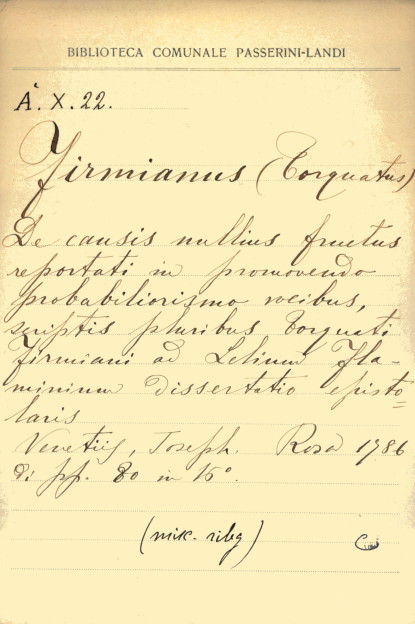 BIBLIOTECA COMUNALE PASSERINI-LANDI
Å. X. 22.
Firmianus (Torquatus)
De causis nullius fructus
reportati in promovendo
probabiliorismo vocibus,
scriptis pluribus Torquati
Firmiani ad Lelium Fla-
minium dissertatio episto=
laris
Venetiis, Joseph. Rosa 1786
di pp. 80 in 16°.
(misc. rileg)